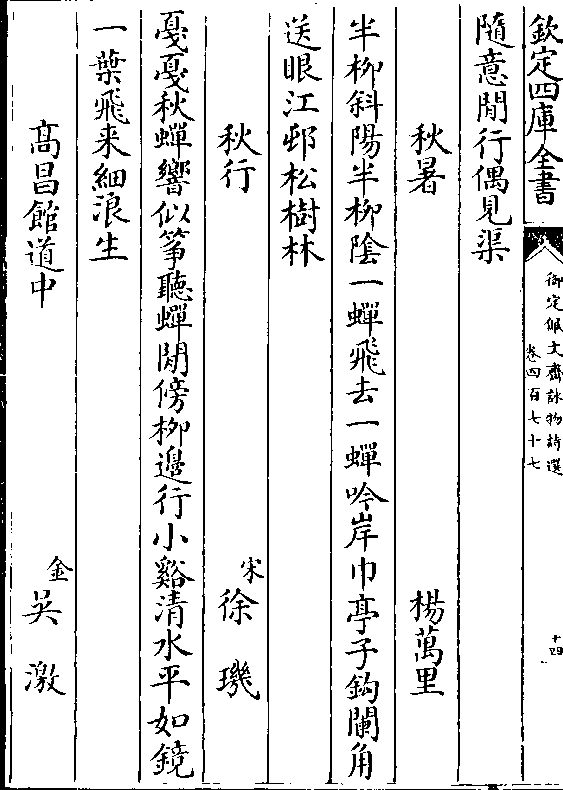 欽定四庫全書
御定佩文齋詠物詩選
卷四百七十七
十四
隨意閒行偶見渠
秋暑
楊萬里
半柳斜陽半柳陰一蟬飛去一蟬吟岸巾亭子鈎闌角
送眼江邨松樹林
秋行
宋
徐璣
戞戞秋蟬響似筝聽蟬閒傍柳邊行小谿清水平如鏡
一葉飛来細浪生
髙昌館道中
金
吳激